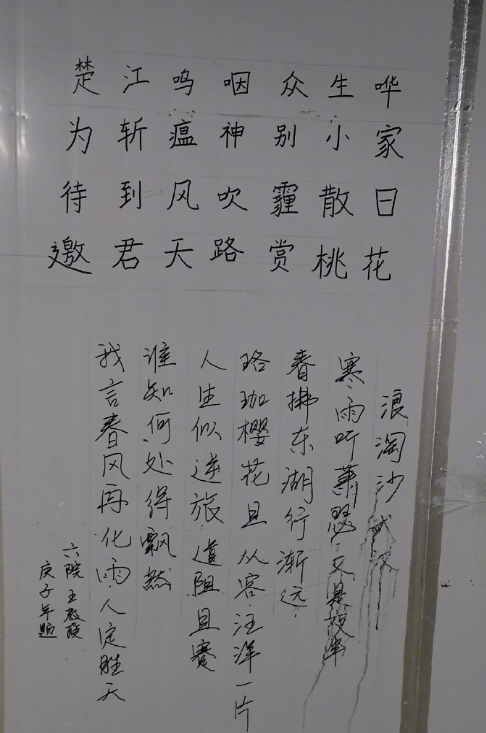 楚江鸣咽众生哗
为斩瘟神别小家
待到风吹霾散日
邀君天路赏桃花
浪淘沙
寒雨听萧瑟 又是
春拂东湖行渐远
珞珈樱花且从容汪洋一片
人生似逆旅道阻且
谁知何处得飘然
我言春风再化雨人定胜天
六院王
庚子年题